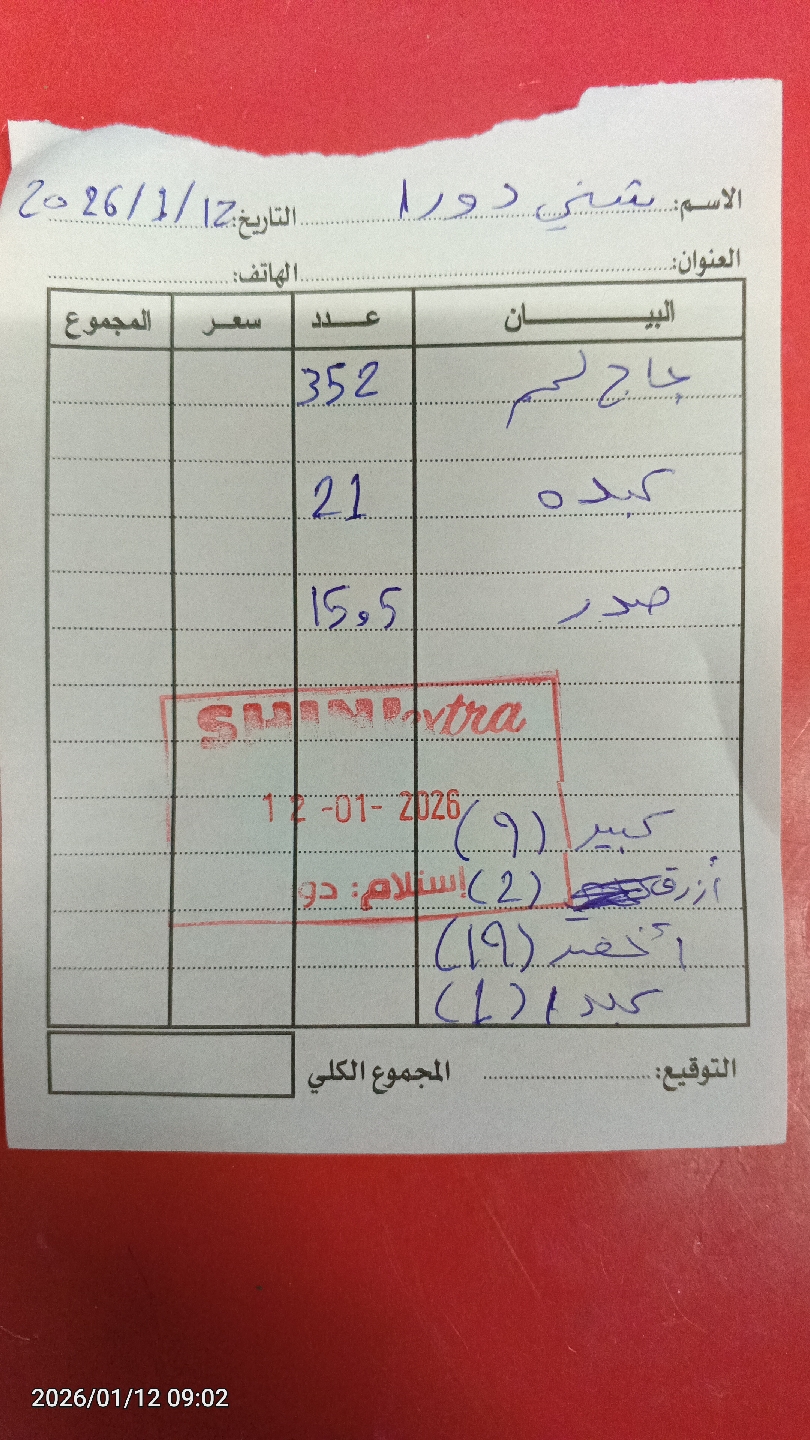 الاسم: شني دورا التاريخ: 2026/1/12
العنوان: الهاتف:
البيان عدد سعر المجموع
جاج لحم 352
كبده 21
صدر 15,5
SHINI extra
12-01-2026
كبير (9)
أزرق (2)
استلام: دو
أخضر (19)
(1)
التوقيع: المجموع الكلي
2026/01/12 09:02